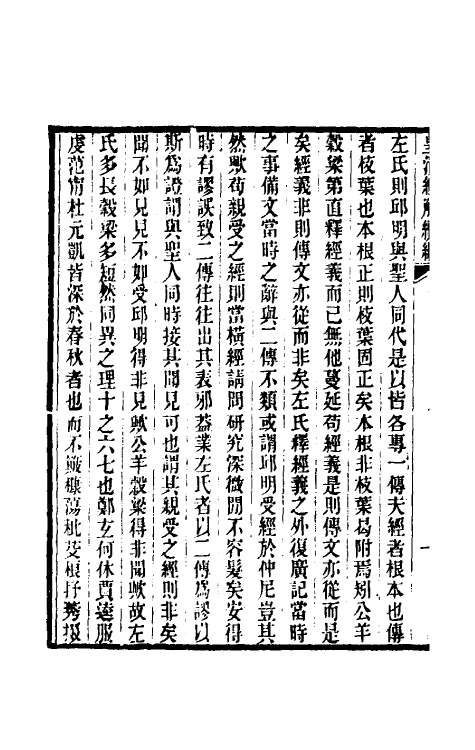 左氏則邱明與聖人同代是以皆各專一傳夫經者根本也傳
者枝葉也本根正則枝葉固正矣本根非枝葉曷附焉矧公羊
穀梁第直釋經義而已無他蔓延苟經義是則傳文亦從而是
矣經義非則傳文亦從而非矣左氏釋經義之外復廣記當時
之事備文當時之辭與二傳不類或謂邱明受經於仲尼豈其
然歟苟親受之經則當橫經請問研究深微閒不容髮矣安得
時有謬誤致二傳往往出其表邪蓋業左氏者以二傳爲謬以
斯爲證謂與聖人同時接其聞見可也謂其親受之經則非矣
聞不如見見不如受邱明得非見歟公羊穀梁得非聞歟故左
氏多長穀梁多短然同異之理十之六七也鄭玄何休賈逵服
虔范甯杜元凱皆深於春秋者也而不簸糠蕩秕芟稂抒莠掇